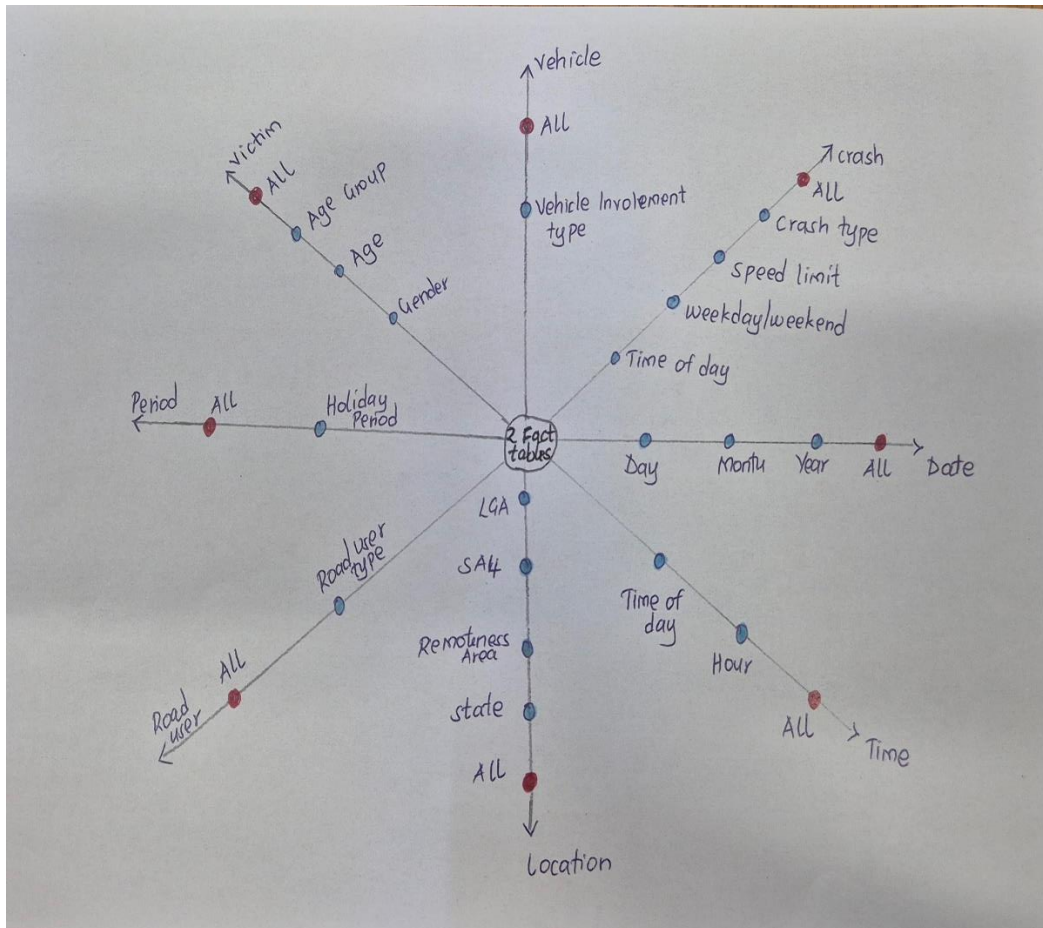 Vehicle
All
Vehicle Involement
type
Crash
All
Crash type
Speed limit
Weekday/weekend
Time of day
Victim
All
Age Group
Age
Gender
Period
All
Holiday
Period
2 Fact
tables
Day
Month
Year
All
Date
LGA
SA4
Remoteness
Area
State
All
Location
Time of
day
Hour
All
Time
Road user
type
All
Road
user